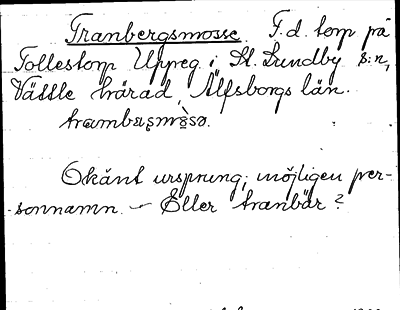 Tranbergsmosse. F.d. torp på
Tollestorp Uppeg. i St. Lundby s:n,
Vättle härad, Älfsborgs län.
Okänt ursprung, möjligen per-
sonnamn. — Eller tranbär?